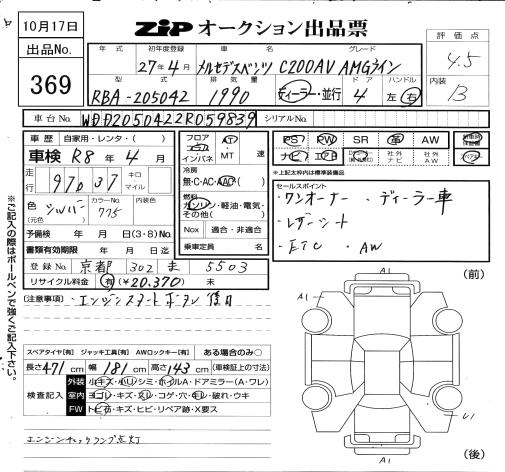 10月17日
ZIP オークション出品票
評価点
4.5
内装
B
出品No.
369
年式 初年度登録 車名 グレード
27年4月 メルセデスベンツ C200AV AMGライン
型式 排気量 ドア ハンドル
RBA-205042 1990 ディーラー・並行 4 左・右
車台No. WDD2050422R059839 シリアルNo.
車歴 自家用・レンタ・( )
車検 R8年 4月
走行 97037 キロ マイル
色(元色) シルバー カラーNo. 775 内装色
予備検 年 月 日(3・6)No.
書類有効期限 年 月 日
登録No. 京都 302 ま 5503
リサイクル料金 有(¥20,370) 未
フロア コラム インパネ AT MT 速
冷房
無・C・AC・AAC
燃料
ガソリン・軽油・電気・その他( )
Nox 適合・非適合
乗車定員 名
PS PW SR 革 AW
ナビ エアB 社外ナビ 社外AW
*上記太枠内は標準装備品
セールスポイント
・ワンオーナー ・ディーラー車
・レザーシート
・ETC ・AW
[注意事項]・エンジンスタートボタン
スペアタイヤ[有] ジャッキ工具[有] AWロックキー[有] ある場合のみ○
長さ471cm 幅181cm 高さ143cm (車検証上の寸法)
検査記入
外装 小キズ・小ヘコ・シミ・ホイルA・ドアミラー(A・ワレ)
室内 ヨゴレ・キズ・スレ・コゲ・穴・キレ・破れ・ウキ
FW トビ石・キズ・ヒビ・リペア跡・X要ス
エンジンチェックランプ点灯
※ご記入の際はボールペンで強くご記入下さい。
(前)
A1
A1
U1
A1
(後)